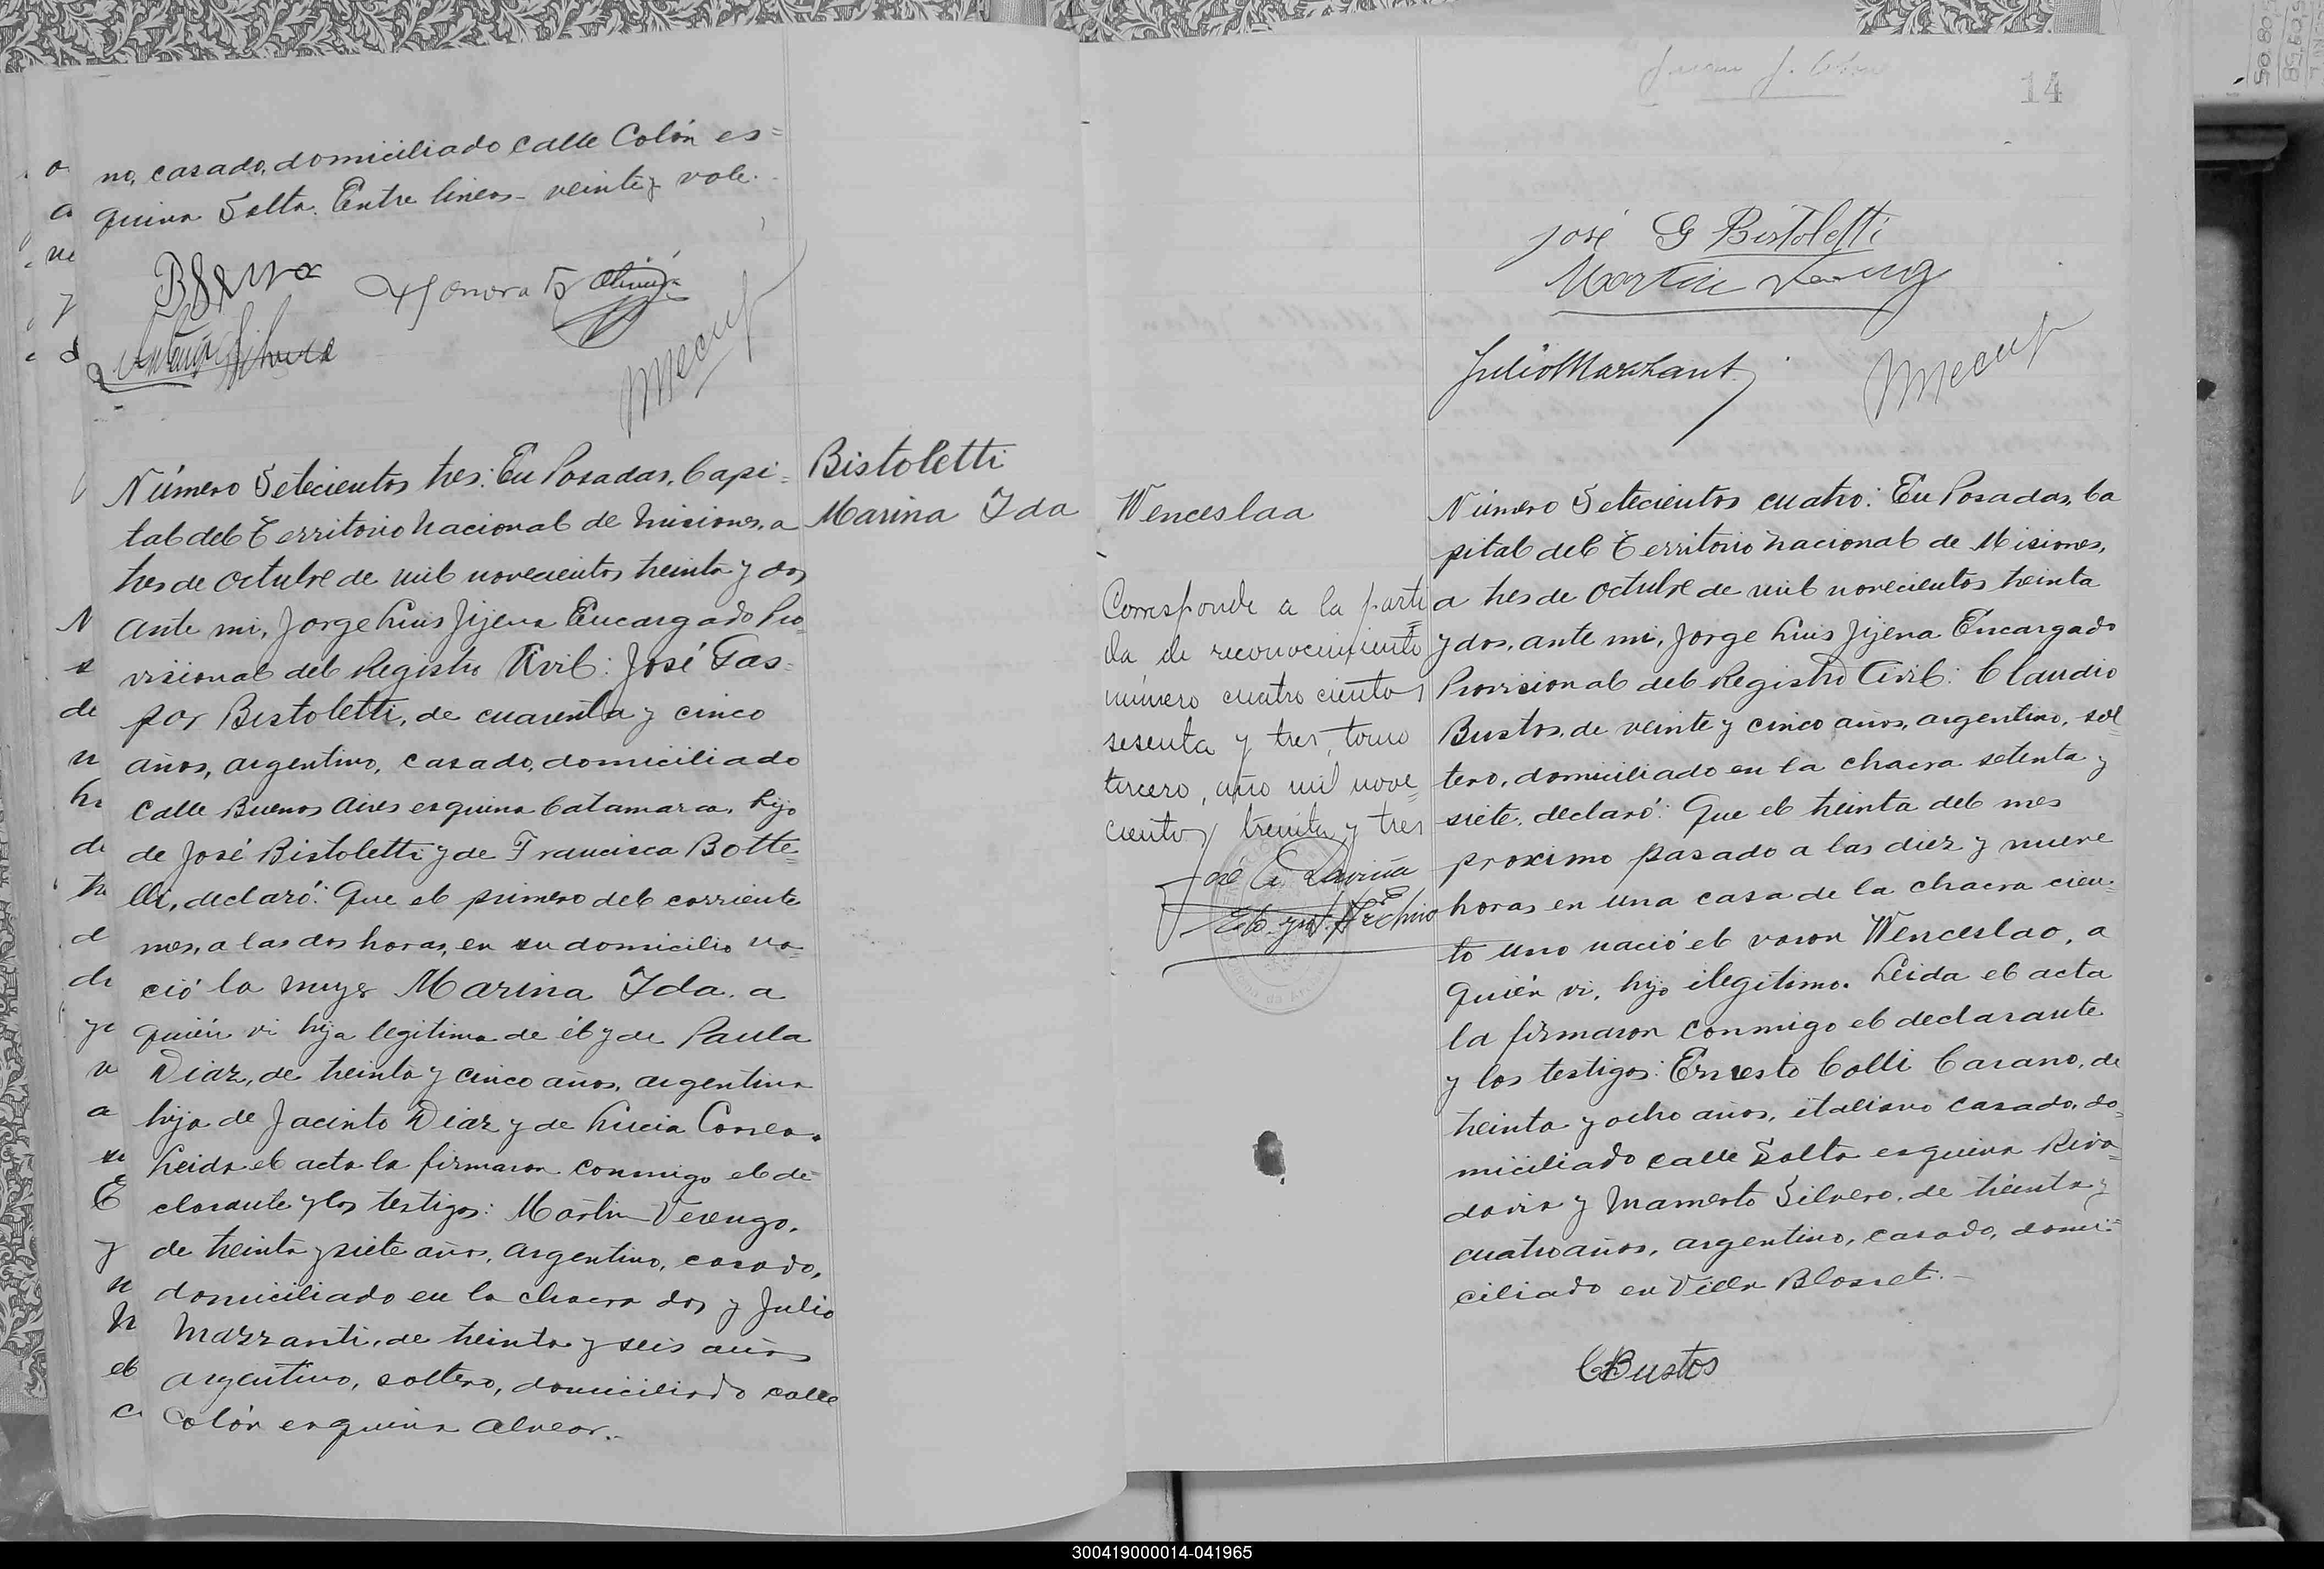 no, casado, domiciliado calle Colón es=
quina Salta. Entre lineas - veinte y vale.
Número Setecientos tres: En Posadas, Capi=
tal del Territorio Nacional de Misiones, a
tres de Octubre de mil novecientos treinta y dos
Ante mi, Jorge Luis Jijena Encargado Pro=
visional del Registro Civil: José Gas=
par Bistoletti, de cuarenta y cinco
años, argentino, casado, domiciliado
calle Buenos Aires esquina Catamarca, hijo
de José Bistoletti y de Francisca Botte=
lli, declaró: Que el primero del corriente
mes, a las dos horas, en su domicilio na=
ció la mujer Marina Ida, a
quién vi hija legitima de él y de Paula
Diaz, de treinta y cinco años, argentina
hija de Jacinto Diaz y de Lucia Correa.
Leida el acta la firmaron conmigo el de=
clarante y los testigos: Martin Verengo,
de treinta y siete años, argentino, casado,
domiciliado en la chacra dos y Julio
Mazzanti, de treinta y seis años
argentino, soltero, domiciliado calle
Colón esquina Alvear.-
Bistoletti
Marina Ida
14
José G Bistoletti
Martin
Julio Mazzanti
Wenceslaa
Corresponde a la parti=
da de reconocimiento
número cuatrocientos
sesenta y tres, tomo
tercero, año mil nove=
cientos treinta y tres
Número Setecientos cuatro: En Posadas, Ca
pital del Territorio Nacional de Misiones,
a tres de Octubre de mil novecientos treinta
y dos, ante mi, Jorge Luis Jijena Encargado
Provisional del Registro Civil: Claudio
Bustos, de veinte y cinco años, argentino, sol
tero, domiciliado en la chacra setenta y
siete, declaró: Que el treinta del mes
proximo pasado a las diez y nueve
horas en una casa de la chacra cien=
to uno nació el varon Wenceslao, a
quién vi, hijo ilegitimo. Leida el acta
la firmaron conmigo el declarante
y los testigos: Ernesto Colli Carano, de
treinta y ocho años, italiano casado, do=
miciliado calle Salta esquina Riva=
davia y Mamerto Silvero, de treinta y
cuatro años, argentino, casado, domi=
ciliado en Villa Blosset.-
CBustos
300419000014-041965